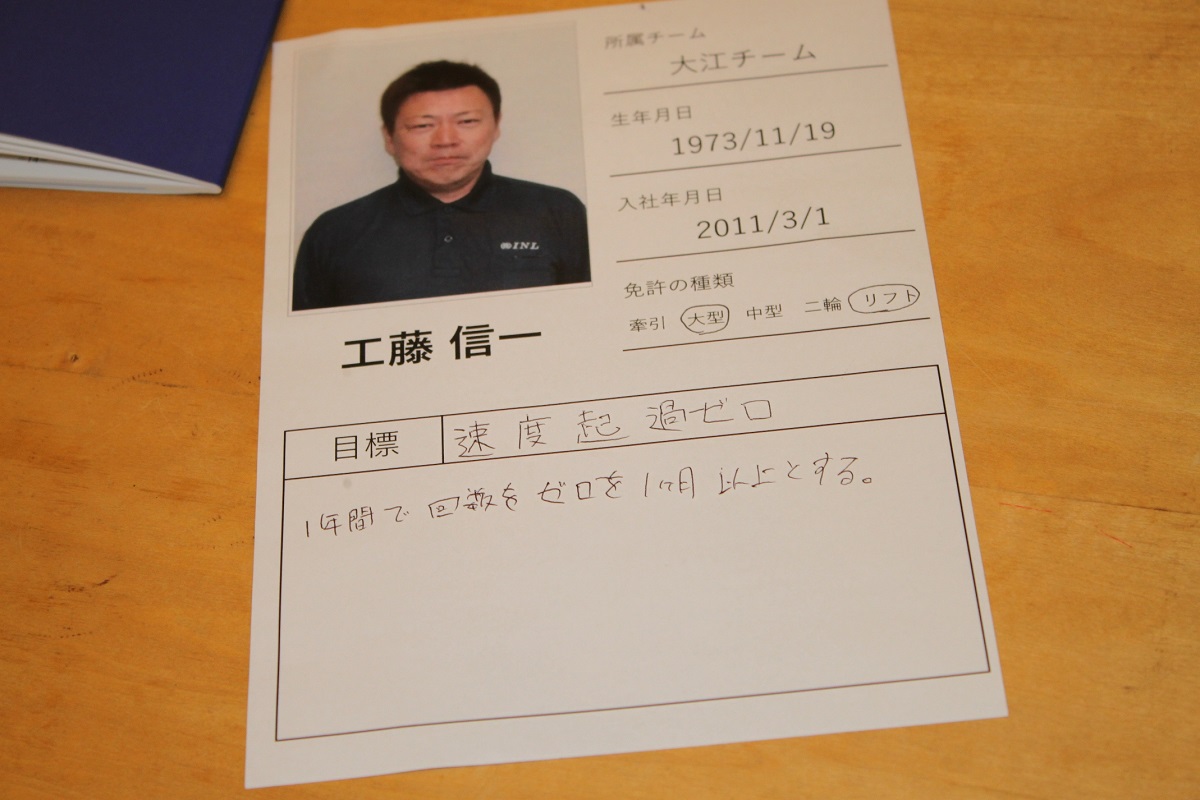 所属チーム
大江チーム
生年月日
1973/11/19
入社年月日
2011/3/1
免許の種類
牽引 大型 中型 二輪 リフト
INL
工藤 信一
目標
速度起過ゼロ
1年間で回数をゼロを1ヶ月以上とする。